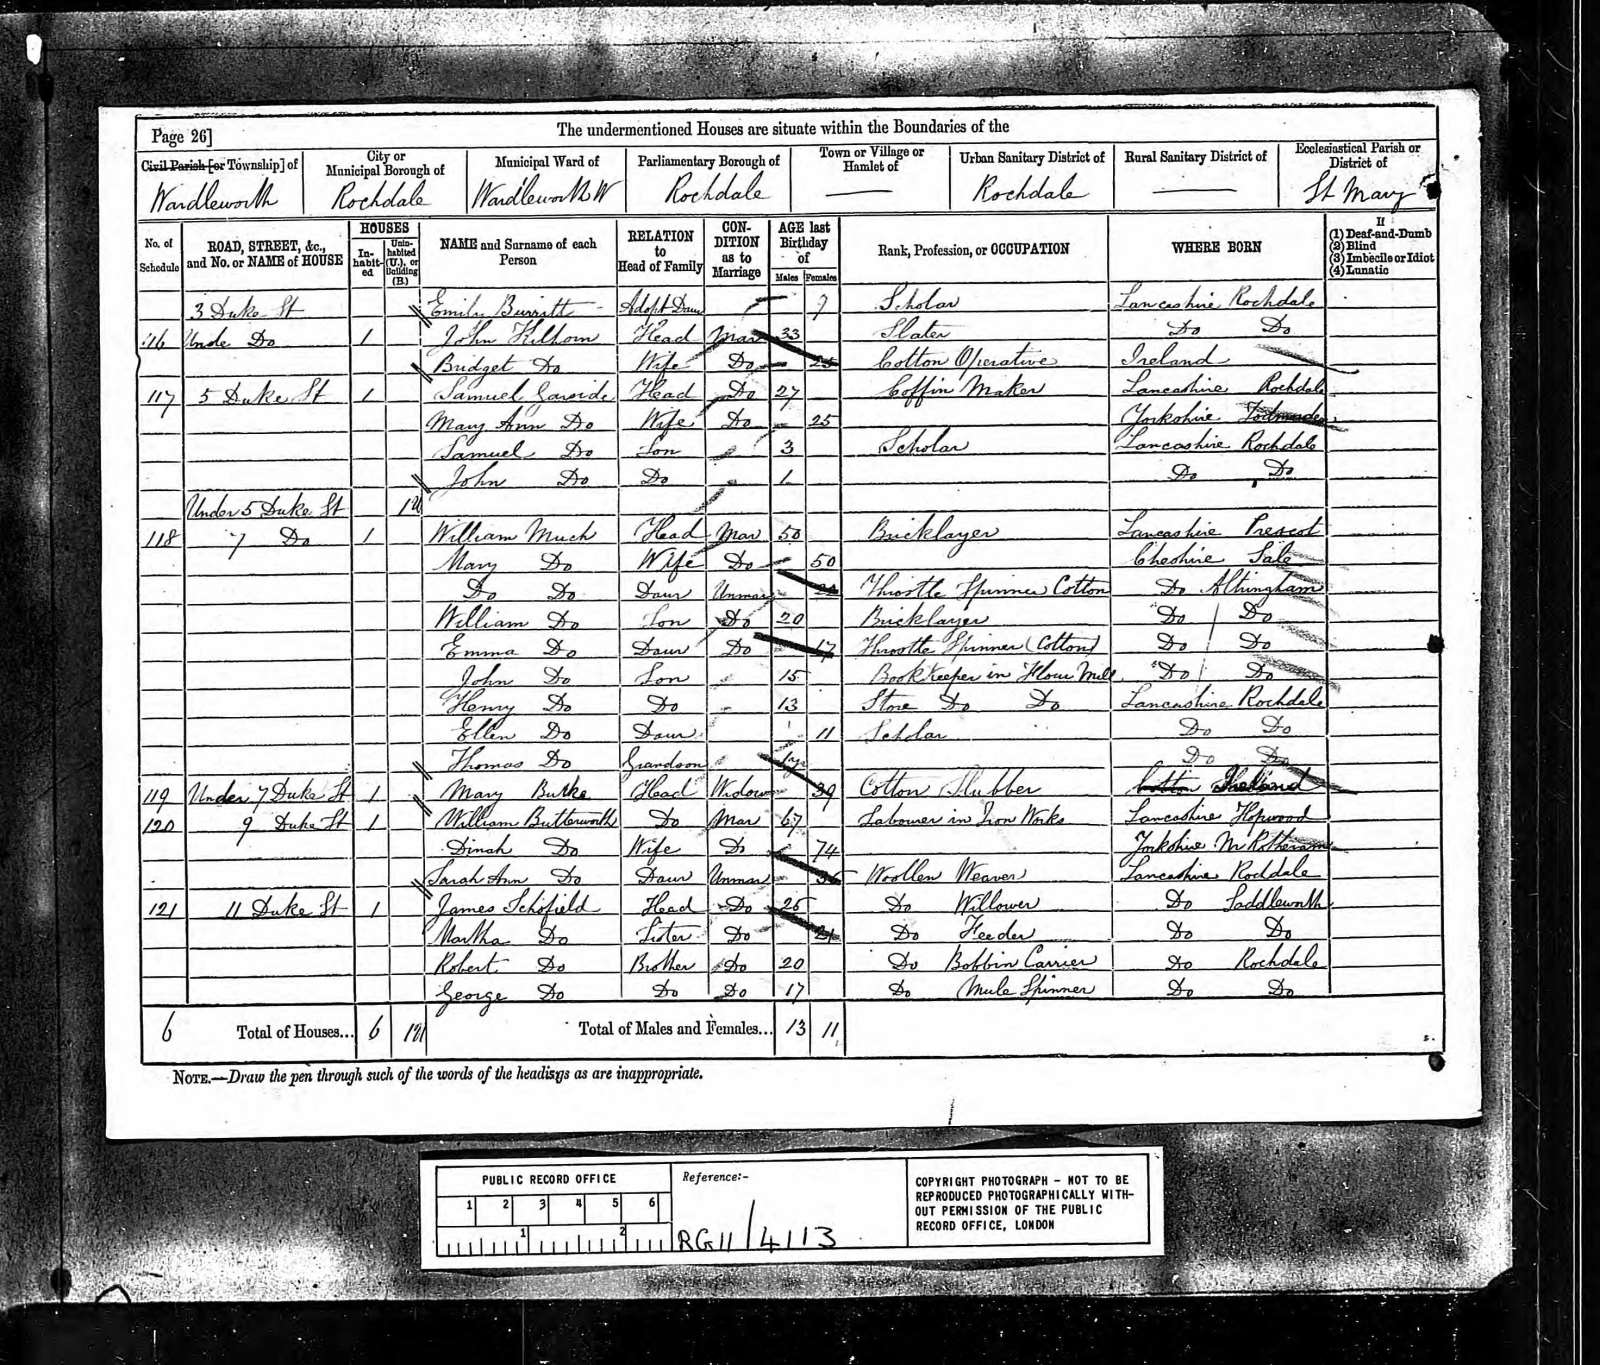 Page 26]
The undermentioned Houses are situate within the Boundaries of the
Civil Parish [or Township] of City or Municipal Borough of Municipal Ward of Parliamentary Borough of Town or Village or Hamlet of Urban Sanitary District of Rural Sanitary District of Ecclesiastical Parish or District of
Wardleworth Rochdale Wardleworth W Rochdale — Rochdale — St Mary
No. of Schedule ROAD, STREET, &c., and No. or NAME of HOUSE HOUSES Inhabited Uninhabited (U.), or Building (B.) NAME and Surname of each Person RELATION to Head of Family CONDITION as to Marriage AGE last Birthday of Males Females Rank, Profession, or OCCUPATION WHERE BORN If (1) Deaf-and-Dumb (2) Blind (3) Imbecile or Idiot (4) Lunatic
3 Duke St Emily Burritt Adopt Daur 7 Scholar Lancashire Rochdale
116 Do 1 John Head Mar 33 Slater Do Do
Bridget Do Wife Do 25 Cotton Operative Ireland
117 5 Duke St 1 Samuel Garside Head Do 27 Coffin Maker Lancashire Rochdale
Mary Ann Do Wife Do 25 Yorkshire Todmorden
Samuel Do Son 3 Scholar Lancashire Rochdale
John Do Do 1 Do Do
Under 5 Duke St 1U
118 7 Do 1 William Much Head Mar 50 Bricklayer Lancashire Prescot
Mary Do Wife Do 50 Cheshire Sale
Do Do Daur Unmar Throstle Spinner Cotton Do Altringham
William Do Son Do 20 Bricklayer Do Do
Emma Do Daur Do 17 Throstle Spinner (Cotton) Do Do
John Do Son 15 Bookkeeper in Flour Mill Do Do
Henry Do Do 13 Store Do Do Lancashire Rochdale
Ellen Do Daur 11 Scholar Do Do
Thomas Do Grandson Do Do
119 Under 7 Duke St 1 Mary Burke Head Widow 39 Cotton Slubber Cotton Ireland
120 9 Duke St 1 William Butterworth Do Mar 67 Labourer in Iron Works Lancashire Hopwood
Dinah Do Wife Do 74 Yorkshire Nr Rotheram
Sarah Ann Do Daur Unmar 36 Woollen Weaver Lancashire Rochdale
121 11 Duke St 1 James Schofield Head Do 25 Do Willower Do Saddleworth
Martha Do Sister Do 21 Do Feeder Do Do
Robert Do Brother Do 20 Do Bobbin Carrier Do Rochdale
George Do Do Do 17 Do Mule Spinner Do Do
6 Total of Houses... 6 1U Total of Males and Females... 13 11
NOTE.—Draw the pen through such of the words of the headings as are inappropriate.
PUBLIC RECORD OFFICE
1 2 3 4 5 6
1 2
Reference:-
RG11/4113
COPYRIGHT PHOTOGRAPH - NOT TO BE
REPRODUCED PHOTOGRAPHICALLY WITH-
OUT PERMISSION OF THE PUBLIC
RECORD OFFICE, LONDON